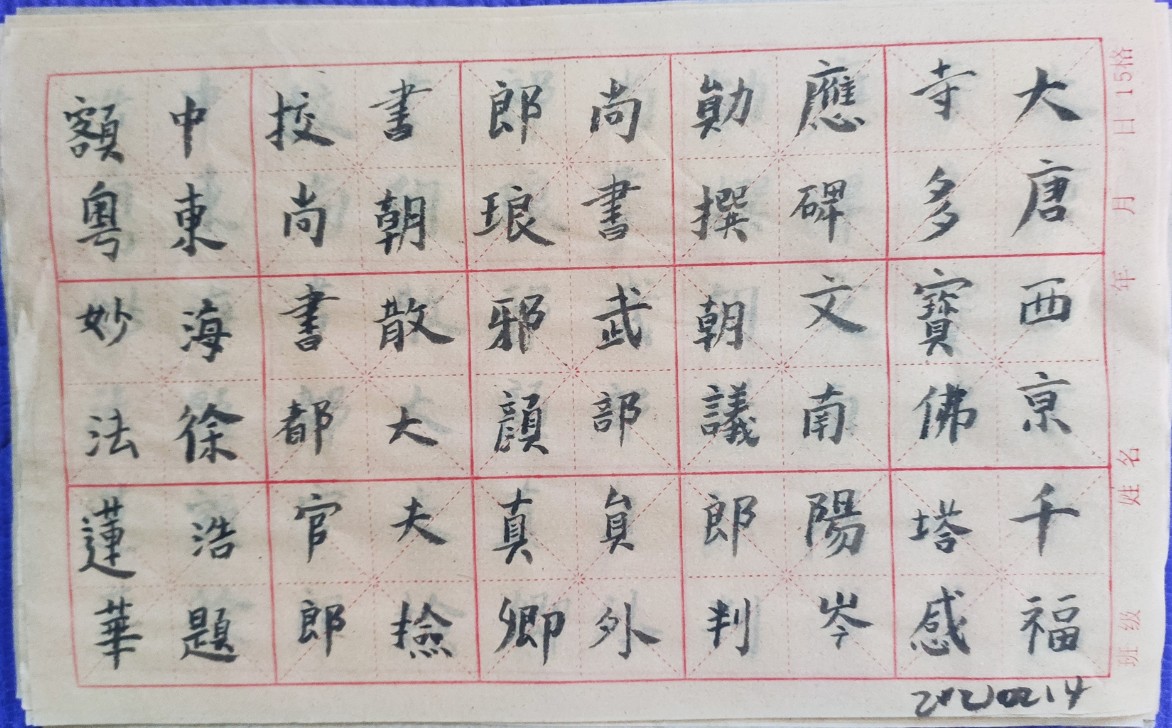 大唐西京千福
寺多寶佛塔感
應碑文南陽岑
勛撰朝議郎判
尚書武部員外
郎琅邪顏真卿
書朝散大夫撿
挍尚書都官郎
中東海徐浩題
額粵妙法蓮華
班级 姓名 年 月 日 15格
20210214